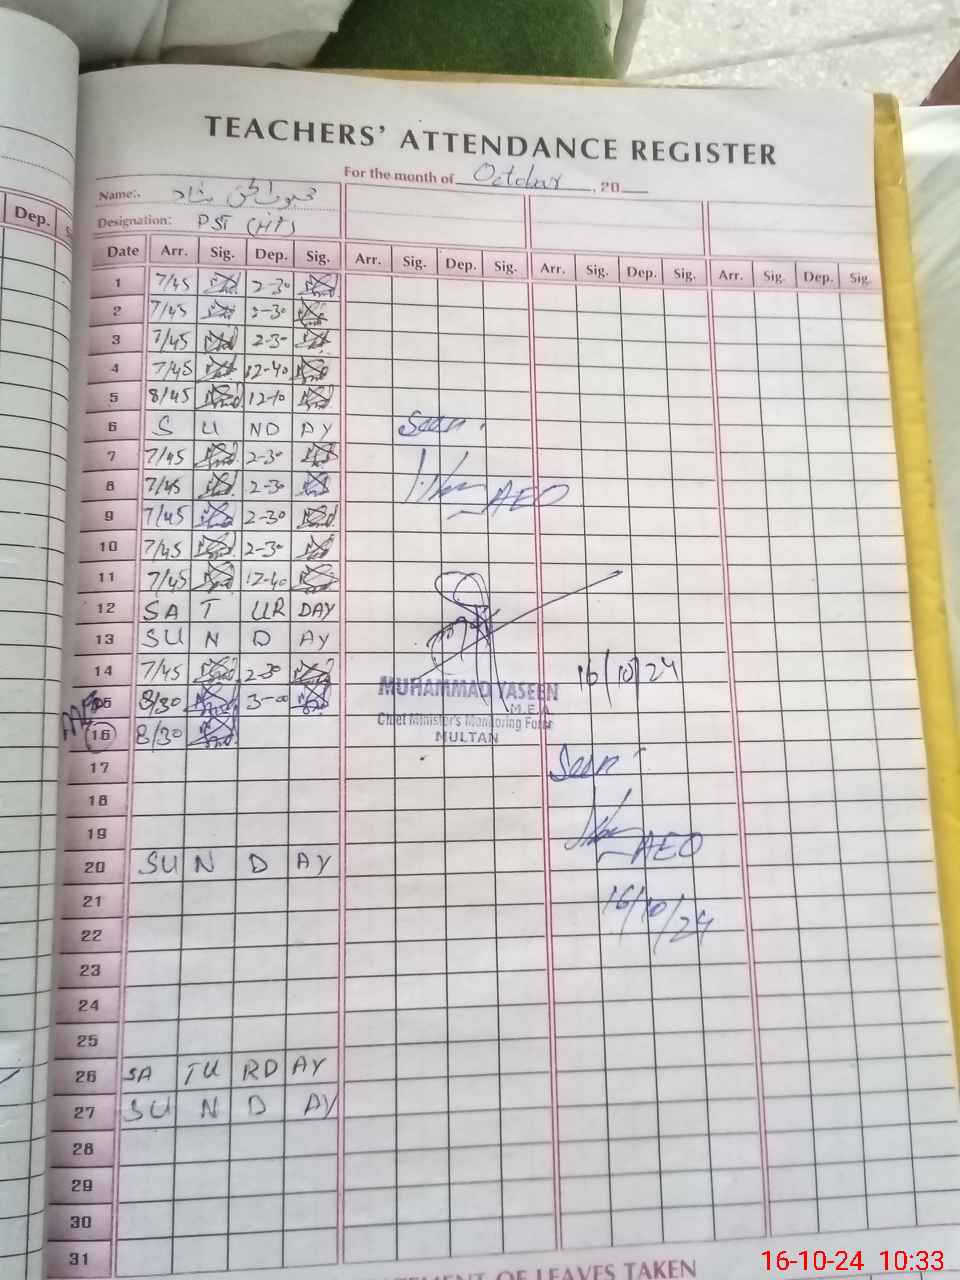 TEACHERS' ATTENDANCE REGISTER
For the month of October, 20
Name:.
Designation: PST (HT)
Dep.
Date Arr. Sig. Dep. Sig. Arr. Sig. Dep. Sig. Arr. Sig. Dep. Sig. Arr. Sig. Dep. Sig.
1 7/45 2-30
2 7/45 2-30
3 7/45 2-30
4 7/45 12-40
5 8/45 12-10
6 S U ND AY Seen
7 7/45 2-30
8 7/45 2-30 AEO
9 7/45 2-30
10 7/45 2-30
11 7/45 12-40
12 SA T UR DAY
13 SU N D AY
14 7/45 2-30 16/10/24
15 8/30 3-00 MUHAMMAD YASEEN
M.E.A
Chief Minister's Monitoring Force
MULTAN
16 8/30
17 Seen
18
19 AEO
20 SU N D AY
21 16/10/24
22
23
24
25
26 SA TU RD AY
27 SU N D AY
28
29
30
31
OF LEAVES TAKEN
16-10-24 10:33